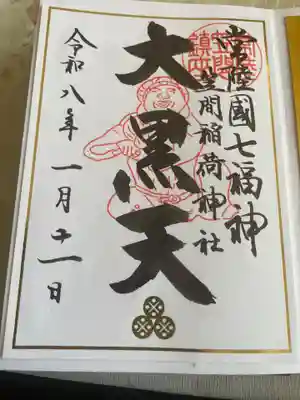 常陸國七福神
笠間稲荷神社
大黒天
令和八年一月十一日